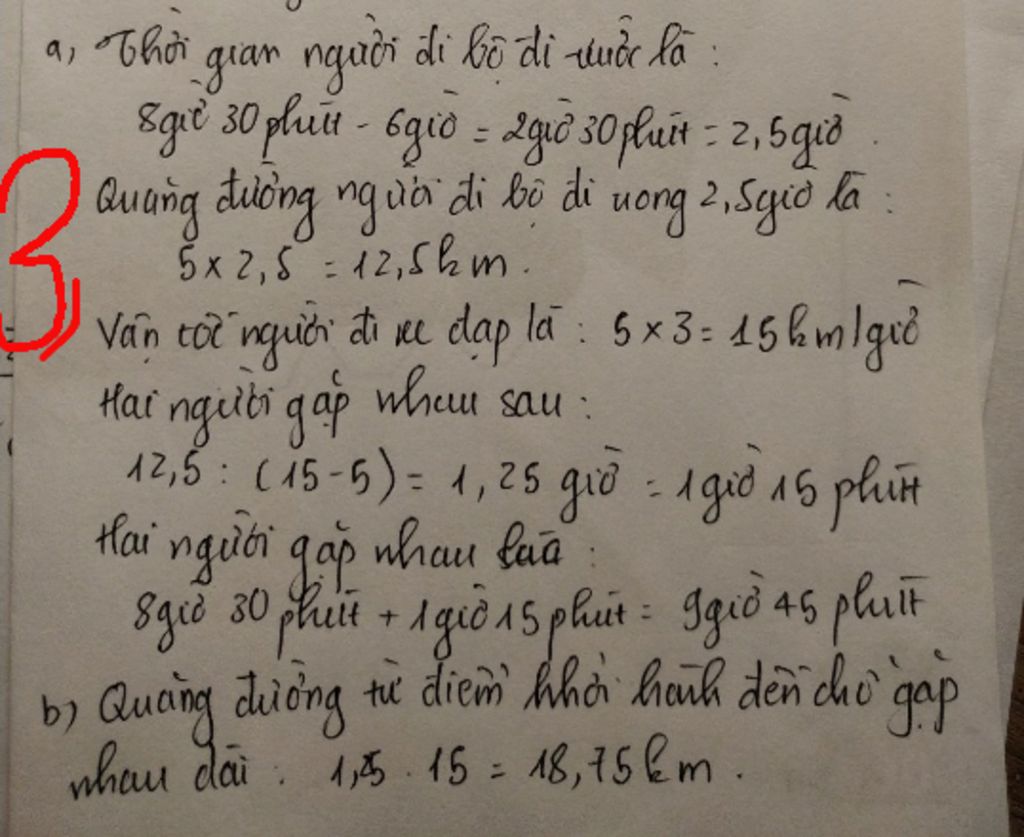 a, Thời gian người đi bộ đi trước là :
8giờ 30 phút - 6giờ = 2giờ 30 phút = 2,5giờ .
3, Quãng đường người đi bộ đi trong 2,5giờ là :
5 x 2,5 = 12,5km .
Vận tốc người đi xe đạp là : 5 x 3 = 15km/giờ
Hai người gặp nhau sau :
12,5 : (15-5) = 1,25 giờ = 1giờ 15 phút
Hai người gặp nhau lúc :
8giờ 30 phút + 1giờ 15 phút = 9giờ 45 phút
b) Quãng đường từ điểm khởi hành đến chỗ gặp
nhau dài : 1,25 . 15 = 18,75km .